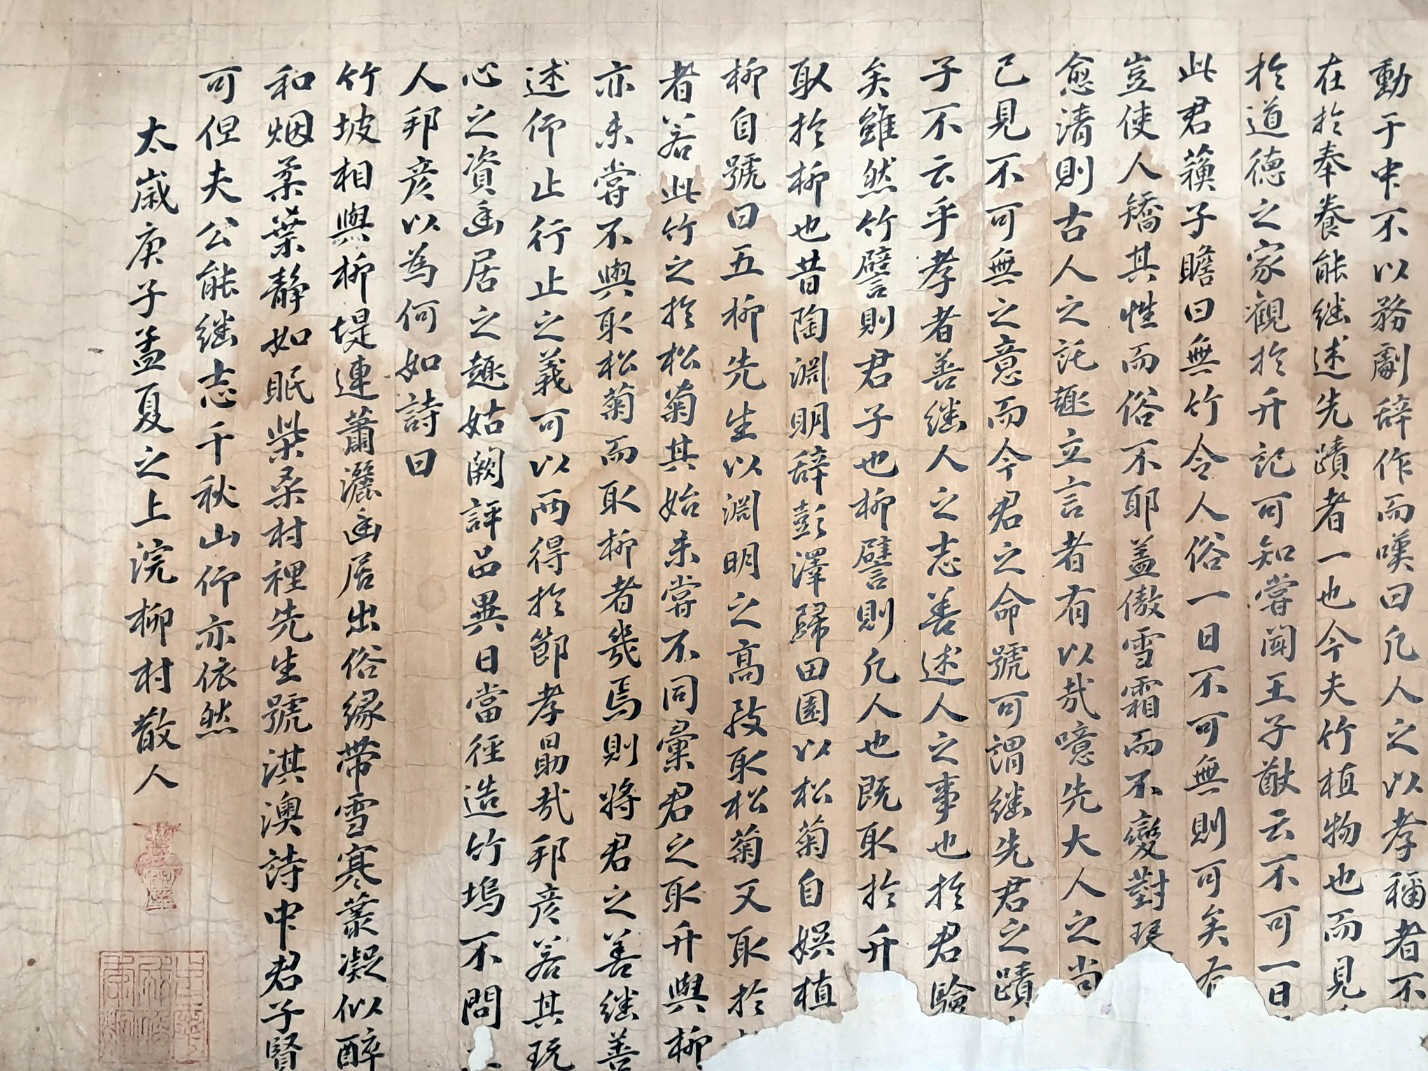 動于中不以務劇辞作而嘆曰凡人之以孝稱者不
在於奉養能继述先蹟者一也今夫竹植物也而見
於道德之家觀於卉記可知嘗闻王子猷云不可一日
此君蘓子瞻曰無竹令人俗一日不可無則可矣有
豈使人矯其性而俗不耶盖傲雪霜而不變對
愈清則古人之託趣立言者有以哉噫先大人之尚
已見不可無之意而今君之命號可謂继先君之蹟
子不云乎孝者善继人之志善述人之事也於君驗
矣雖然竹譬則君子也柳譬則凡人也既取於卉
取於柳也昔陶淵明辞彭澤歸田園以松菊自娯植
柳自號曰五柳先生以淵明之高致取松菊又取於
者若此竹之於松菊其始未嘗不同彙君之取卉與柳
亦未嘗不與取松菊而取柳者幾焉則將君之善继善
述仰止行止之義可以兩得於節孝勗哉邦彦若其玩
心之資幽居之趣姑闕評品異日當徑造竹塢不問
人邦彦以為何如詩曰
竹坡相與柳堤連蕭灑幽居出俗緣带雪寒叢凝似醉
和烟柔葉静如眠柴桑村裡先生號淇澳詩中君子賢
可但夫公能继志千秋山仰亦依然
太歲庚子孟夏之上浣柳村散人